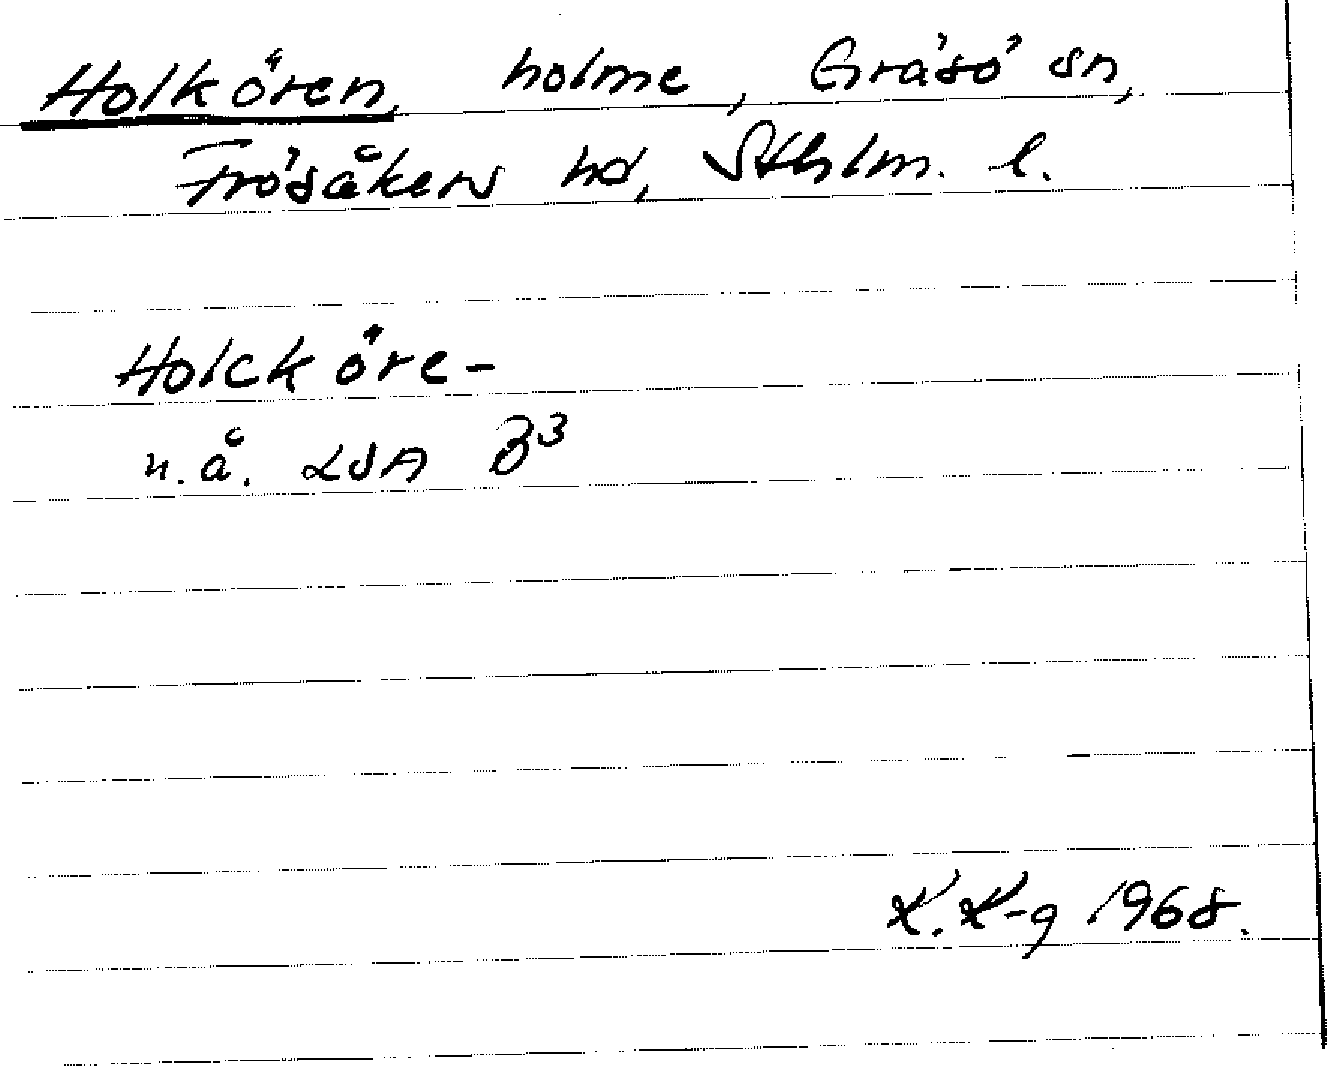 Holkören, holme, Gräsö sn,
Frösåkers hd, Sthlm. l.
Holcköre-
n.å. LSA B³
K. K-g 1968.